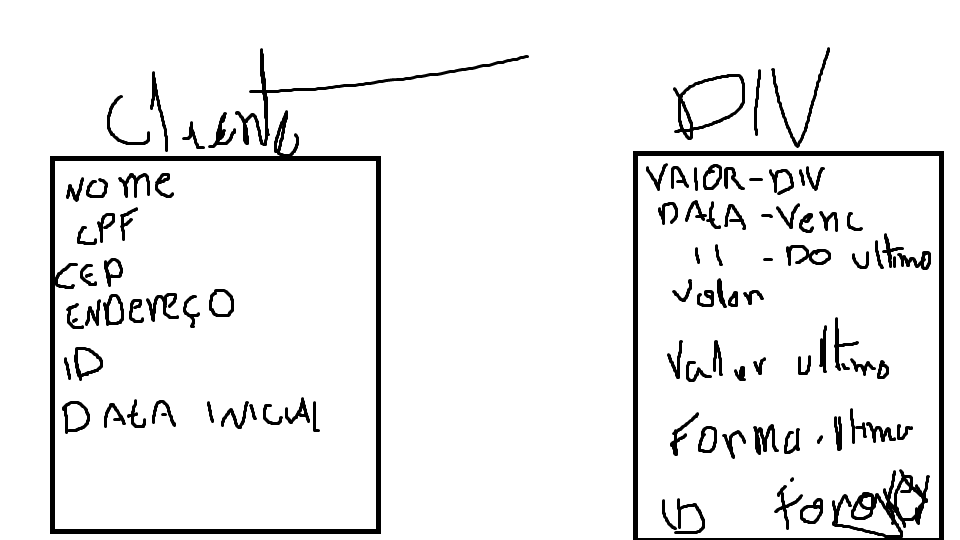 Cliente
NOME
CPF
CEP
ENDEREÇO
ID
DATA INICIAL
DIV
VALOR-DIV
DATA-Venc
11 - DO ultimo
Valor
Valor ultimo
Forma ultimo
ID